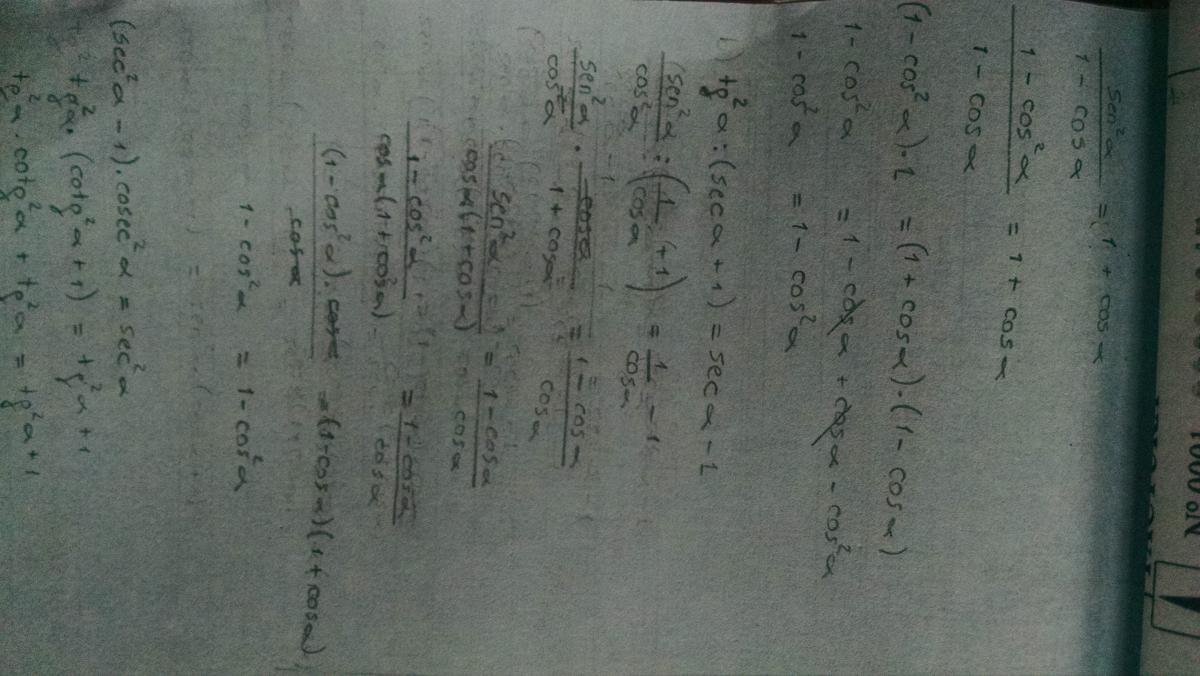 sen²α / 1 - cos α = 1 + cos α
1 - cos²α / 1 - cos α = 1 + cos α
(1 - cos²α) · 1 = (1 + cos α) · (1 - cos α)
1 - cos²α = 1 - cos α + cos α - cos²α
1 - cos²α = 1 - cos²α
tg²α : (sec α + 1) = sec α - 1
sen²α / cos²α : (1 / cos α + 1) = 1 / cos α - 1
sen²α / cos²α · cos α / 1 + cos α = 1 - cos α / cos α
sen²α / cos α (1 + cos α) = 1 - cos α / cos α
1 - cos²α / cos α (1 + cos α) = 1 - cos α / cos α
(1 - cos²α) · cos α / cos α = (1 - cos α)(1 + cos α)
1 - cos²α = 1 - cos²α
(sec²α - 1) · cosec²α = sec²α
tg²α · (cotg²α + 1) = tg²α + 1
tg²α · cotg²α + tg²α = tg²α + 1
No 0001